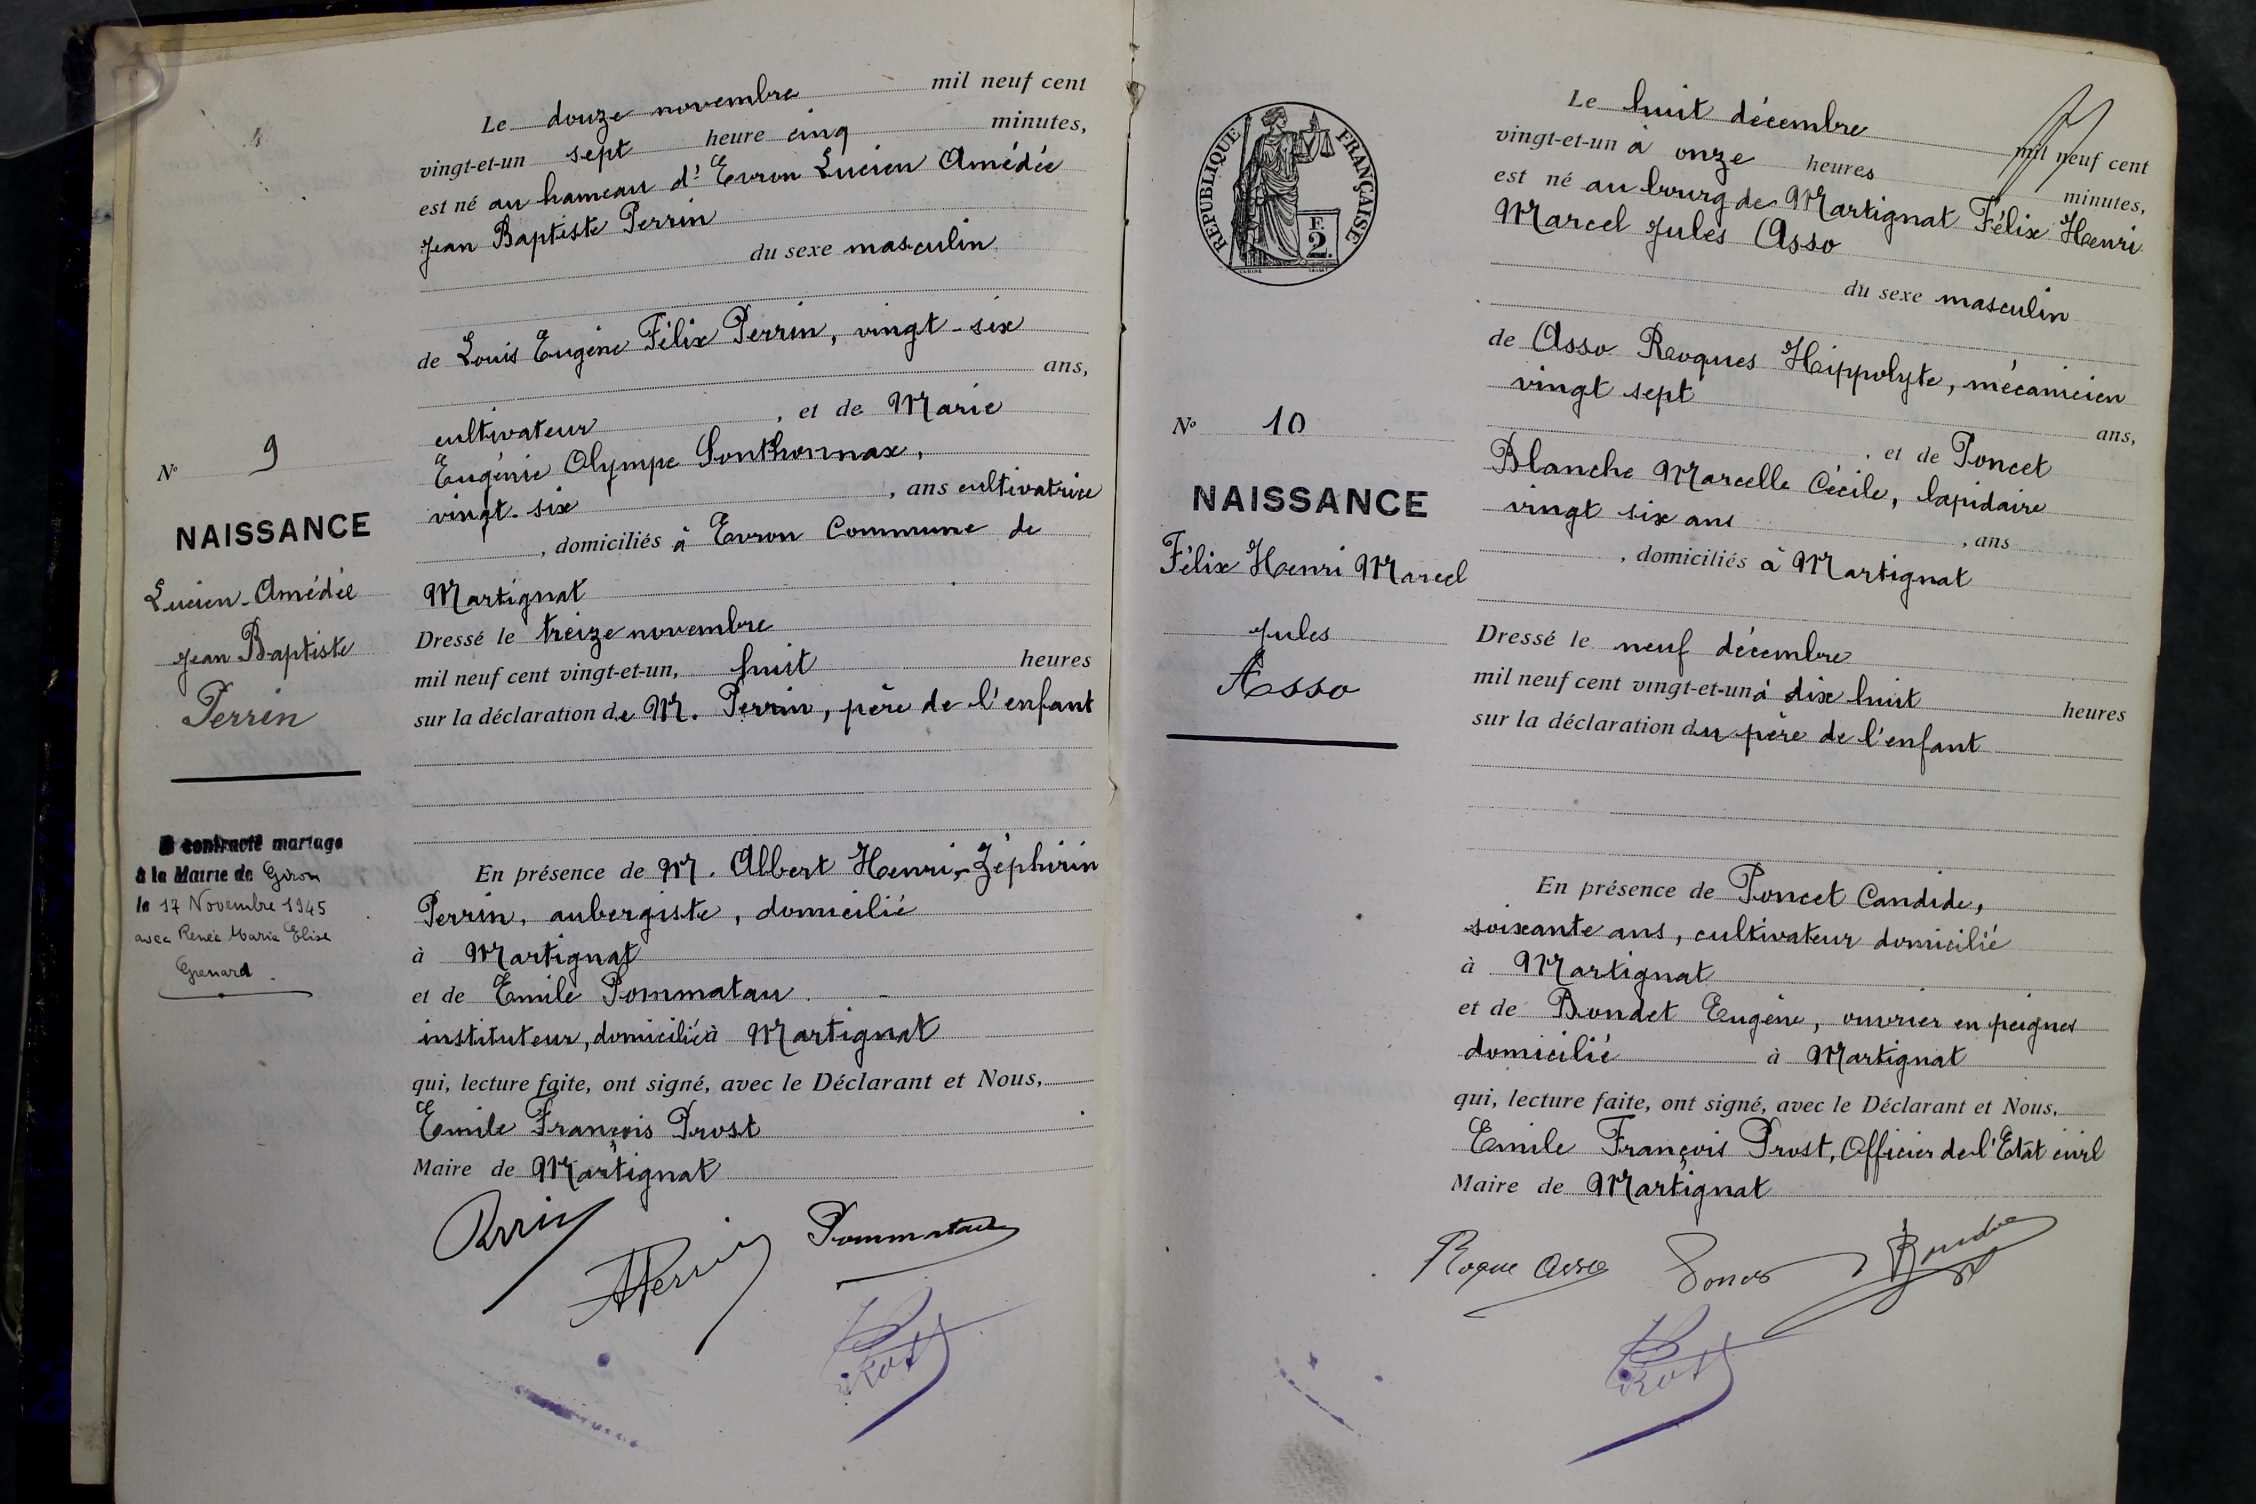 Le douze novembre mil neuf cent
vingt-et-un sept heure cinq minutes,
est né au hameau d'Evron Lucien Amédée
Jean Baptiste Perrin
du sexe masculin
de Louis Eugène Félix Perrin, vingt-six
ans,
cultivateur, et de Marie
Eugénie Olympe Sonthonnax,
vingt-six, ans cultivatrice
, domiciliés à Evron Commune de
Martignat
Dressé le treize novembre
mil neuf cent vingt-et-un, huit heures
sur la déclaration de M. Perrin, père de l'enfant
En présence de M. Albert Henri-Zéphirin
Perrin, aubergiste, domicilié
à Martignat
et de Emile Pommatau
instituteur, domicilié à Martignat
qui, lecture faite, ont signé, avec le Déclarant et Nous,
Emile François Prost
Maire de Martignat
Perrin
APerrin
Pommatau
Prost
No 9
NAISSANCE
Lucien-Amédée
Jean Baptiste
Perrin
A contracté mariage
à la Mairie de Giron
le 17 Novembre 1945
avec Renée Maria Elise
Grenard.
REPUBLIQUE FRANÇAISE
F.
2.
No 10
NAISSANCE
Félix Henri Marcel
Jules
Asso
Le huit décembre mil neuf cent
vingt-et-un à onze heures minutes,
est né au bourg de Martignat Félix Henri
Marcel Jules Asso
du sexe masculin
de Asso Roques Hippolyte, mécanicien
vingt sept
ans,
, et de Poncet
Blanche Marcelle Cécile, lapidaire
vingt six ans, ans
, domiciliés à Martignat
Dressé le neuf décembre
mil neuf cent vingt-et-un à dix huit heures
sur la déclaration du père de l'enfant
En présence de Poncet Candide,
soixante ans, cultivateur domicilié
à Martignat
et de Bondet Eugène, ouvrier en peignes
domicilié à Martignat
qui, lecture faite, ont signé, avec le Déclarant et Nous,
Emile François Prost, Officier de l'Etat civil
Maire de Martignat
Roque Asso
Prost